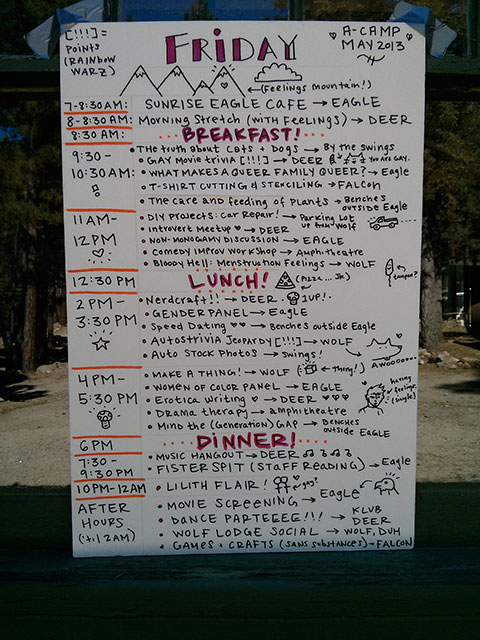 [!!!] =
Points
(RAINBOW
WARZ)
FRiDAY
A-CAMP
MAY 2013
(Feelings mountain!)
7-8:30AM: SUNRISE EAGLE CAFE → EAGLE
8-8:30 AM: MORNING STRETCH (WITH FEELINGS) → DEER
8:30 AM: BREAKFAST!
9:30 - 10:30AM:
• The truth about cats + Dogs → By the swings
• GAY MOVIE TRIVIA [!!!] → DEER YOU ARE GAY.
• WHAT MAKES A QUEER FAMILY QUEER? → Eagle
• T-SHIRT CUTTING & STENCILING → FALCON
• The care and feeding of Plants → Benches outside EAGLE
11AM - 12PM
• DIY PROJECTS: CAR Repair! → Parking Lot up from Wolf
• Introvert Meetup ♥ → DEER
• NON-MONOGAMY DISCUSSION → EAGLE
• Comedy Improv Workshop → Amphitheatre
• Bloody Hell: Menstruation Feelings → WOLF
tampon?
12:30 PM LUNCH! (PIZZA... JK)
2 PM - 3:30 PM
• Nerdcraft!! → DEER. 1UP!
• GENDER PANEL → Eagle
• Speed Dating ♥♥ → Benches outside Eagle
• AUTOSTRIVIA JEOPARDY [!!!] → WOLF
• Auto STOCK PHOTOS → Swings!
AWOOOOO...
4PM - 5:30 PM
• MAKE A THING! → WOLF ( ← thing!)
• WOMEN OF COLOR PANEL → EAGLE
• Erotica writing ♡ → DEER ♥♥♥
• Drama therapy → amphitheatre
• Mind the (Generation) GAP → BENCHES outside EAGLE
having feelings (single)
6PM DINNER!
7:30 - 9:30 PM
• MUSIC HANGOUT → DEER
• FISTER SPIT (STAFF READING) → Eagle
10PM-12AM
• LILITH FLAIR!
• MOVIE SCREENING → Eagle
AFTER HOURS (til 2AM)
• DANCE PARTEEEE!!! → KLUB DEER
• WOLF LODGE SOCIAL → WOLF, DUH
• GAMES + CRAFTS (SANS SUBSTANCES) → FALCON